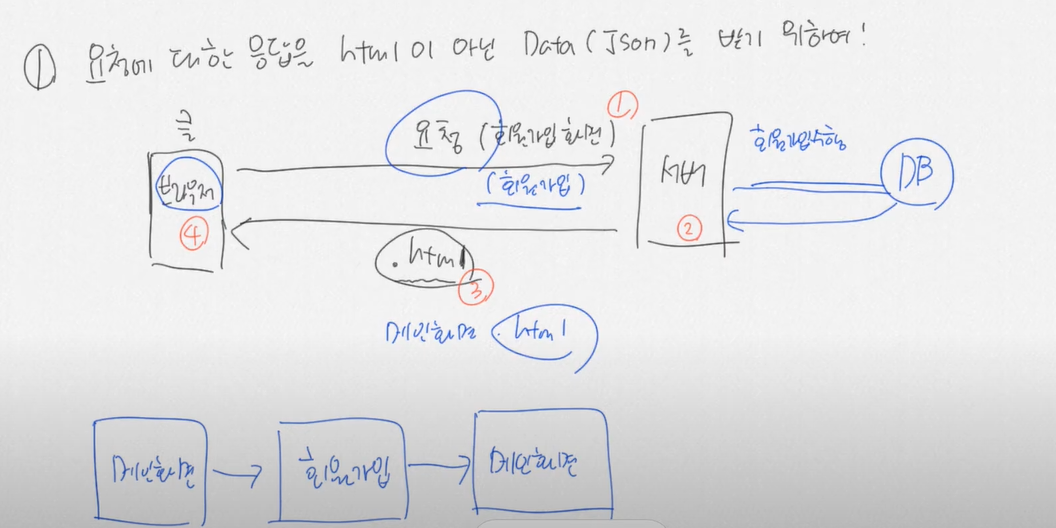 ① 요청에 대한 응답을 html이 아닌 Data(Json)를 받기 위하여!
요청 (회원가입 화면) ①
(회원가입)
브라우저
④
서버
②
회원가입수행
DB
.html
③
메인화면 .html
메인화면 → 회원가입 → 메인화면